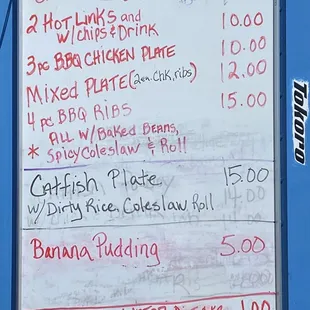 2 Hot Links and 10.00
w/chips & Drink
3 pc BBQ Chicken Plate 10.00
Mixed Plate (2en. Chk, ribs) 12.00
4 pc BBQ Ribs 15.00
All w/Baked Beans,
* Spicy Coleslaw & Roll
Catfish Plate 15.00
w/Dirty Rice, Coleslaw Roll 14.00
Banana Pudding 5.00
1.00
Tokoro